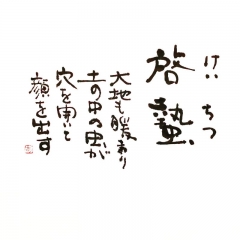 けい ちつ
啓蟄
大地も暖まり
土の中の虫が
穴を開いて
顔を出す